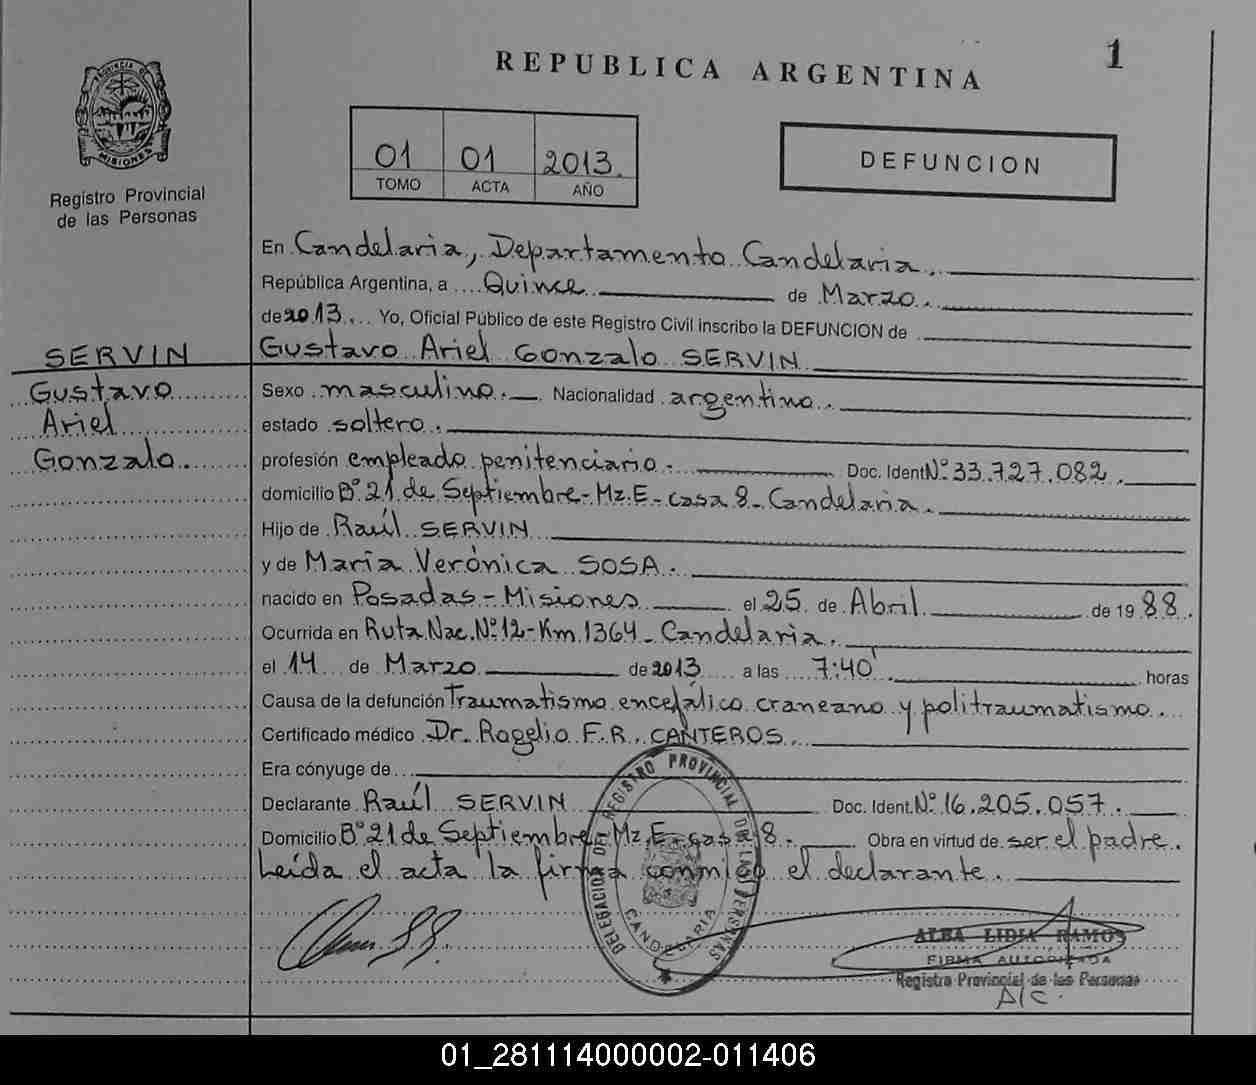 1
REPUBLICA ARGENTINA
PROVINCIA D
MISIONES
Registro Provincial
de las Personas
01 01 2013.
TOMO ACTA AÑO
DEFUNCION
En Candelaria, Departamento Candelaria.
República Argentina, a Quince de Marzo.
de 2013. Yo, Oficial Público de este Registro Civil inscribo la DEFUNCION de
Gustavo Ariel Gonzalo SERVIN
SERVIN
Gustavo
Ariel
Gonzalo.
Sexo masculino. Nacionalidad argentino.
estado soltero.
profesión empleado penitenciario. Doc. Ident. Nº 33.727.082.
domicilio Bº 21 de Septiembre - Mz. E - casa 8 - Candelaria.
Hijo de Raúl SERVIN
y de María Verónica SOSA.
nacido en Posadas - Misiones el 25 de Abril de 1988.
Ocurrida en Ruta Nac. Nº 12 - Km 1364 - Candelaria.
el 14 de Marzo de 2013 a las 7:40' horas
Causa de la defunción Traumatismo encefálico craneano y politraumatismo.
Certificado médico Dr. Rogelio F. R. CANTEROS.
Era cónyuge de
Declarante Raúl SERVIN Doc. Ident. Nº 16.205.057.
Domicilio Bº 21 de Septiembre - Mz. E - casa 8. Obra en virtud de ser el padre.
Leída el acta la firma conmigo el declarante.
DELEGACION DEL REGISTRO PROVINCIAL DE LAS PERSONAS
CANDELARIA
ALBA LIDIA RAMOS
FIRMA AUTORIZADA
Registro Provincial de las Personas
A/C.
01_281114000002-011406